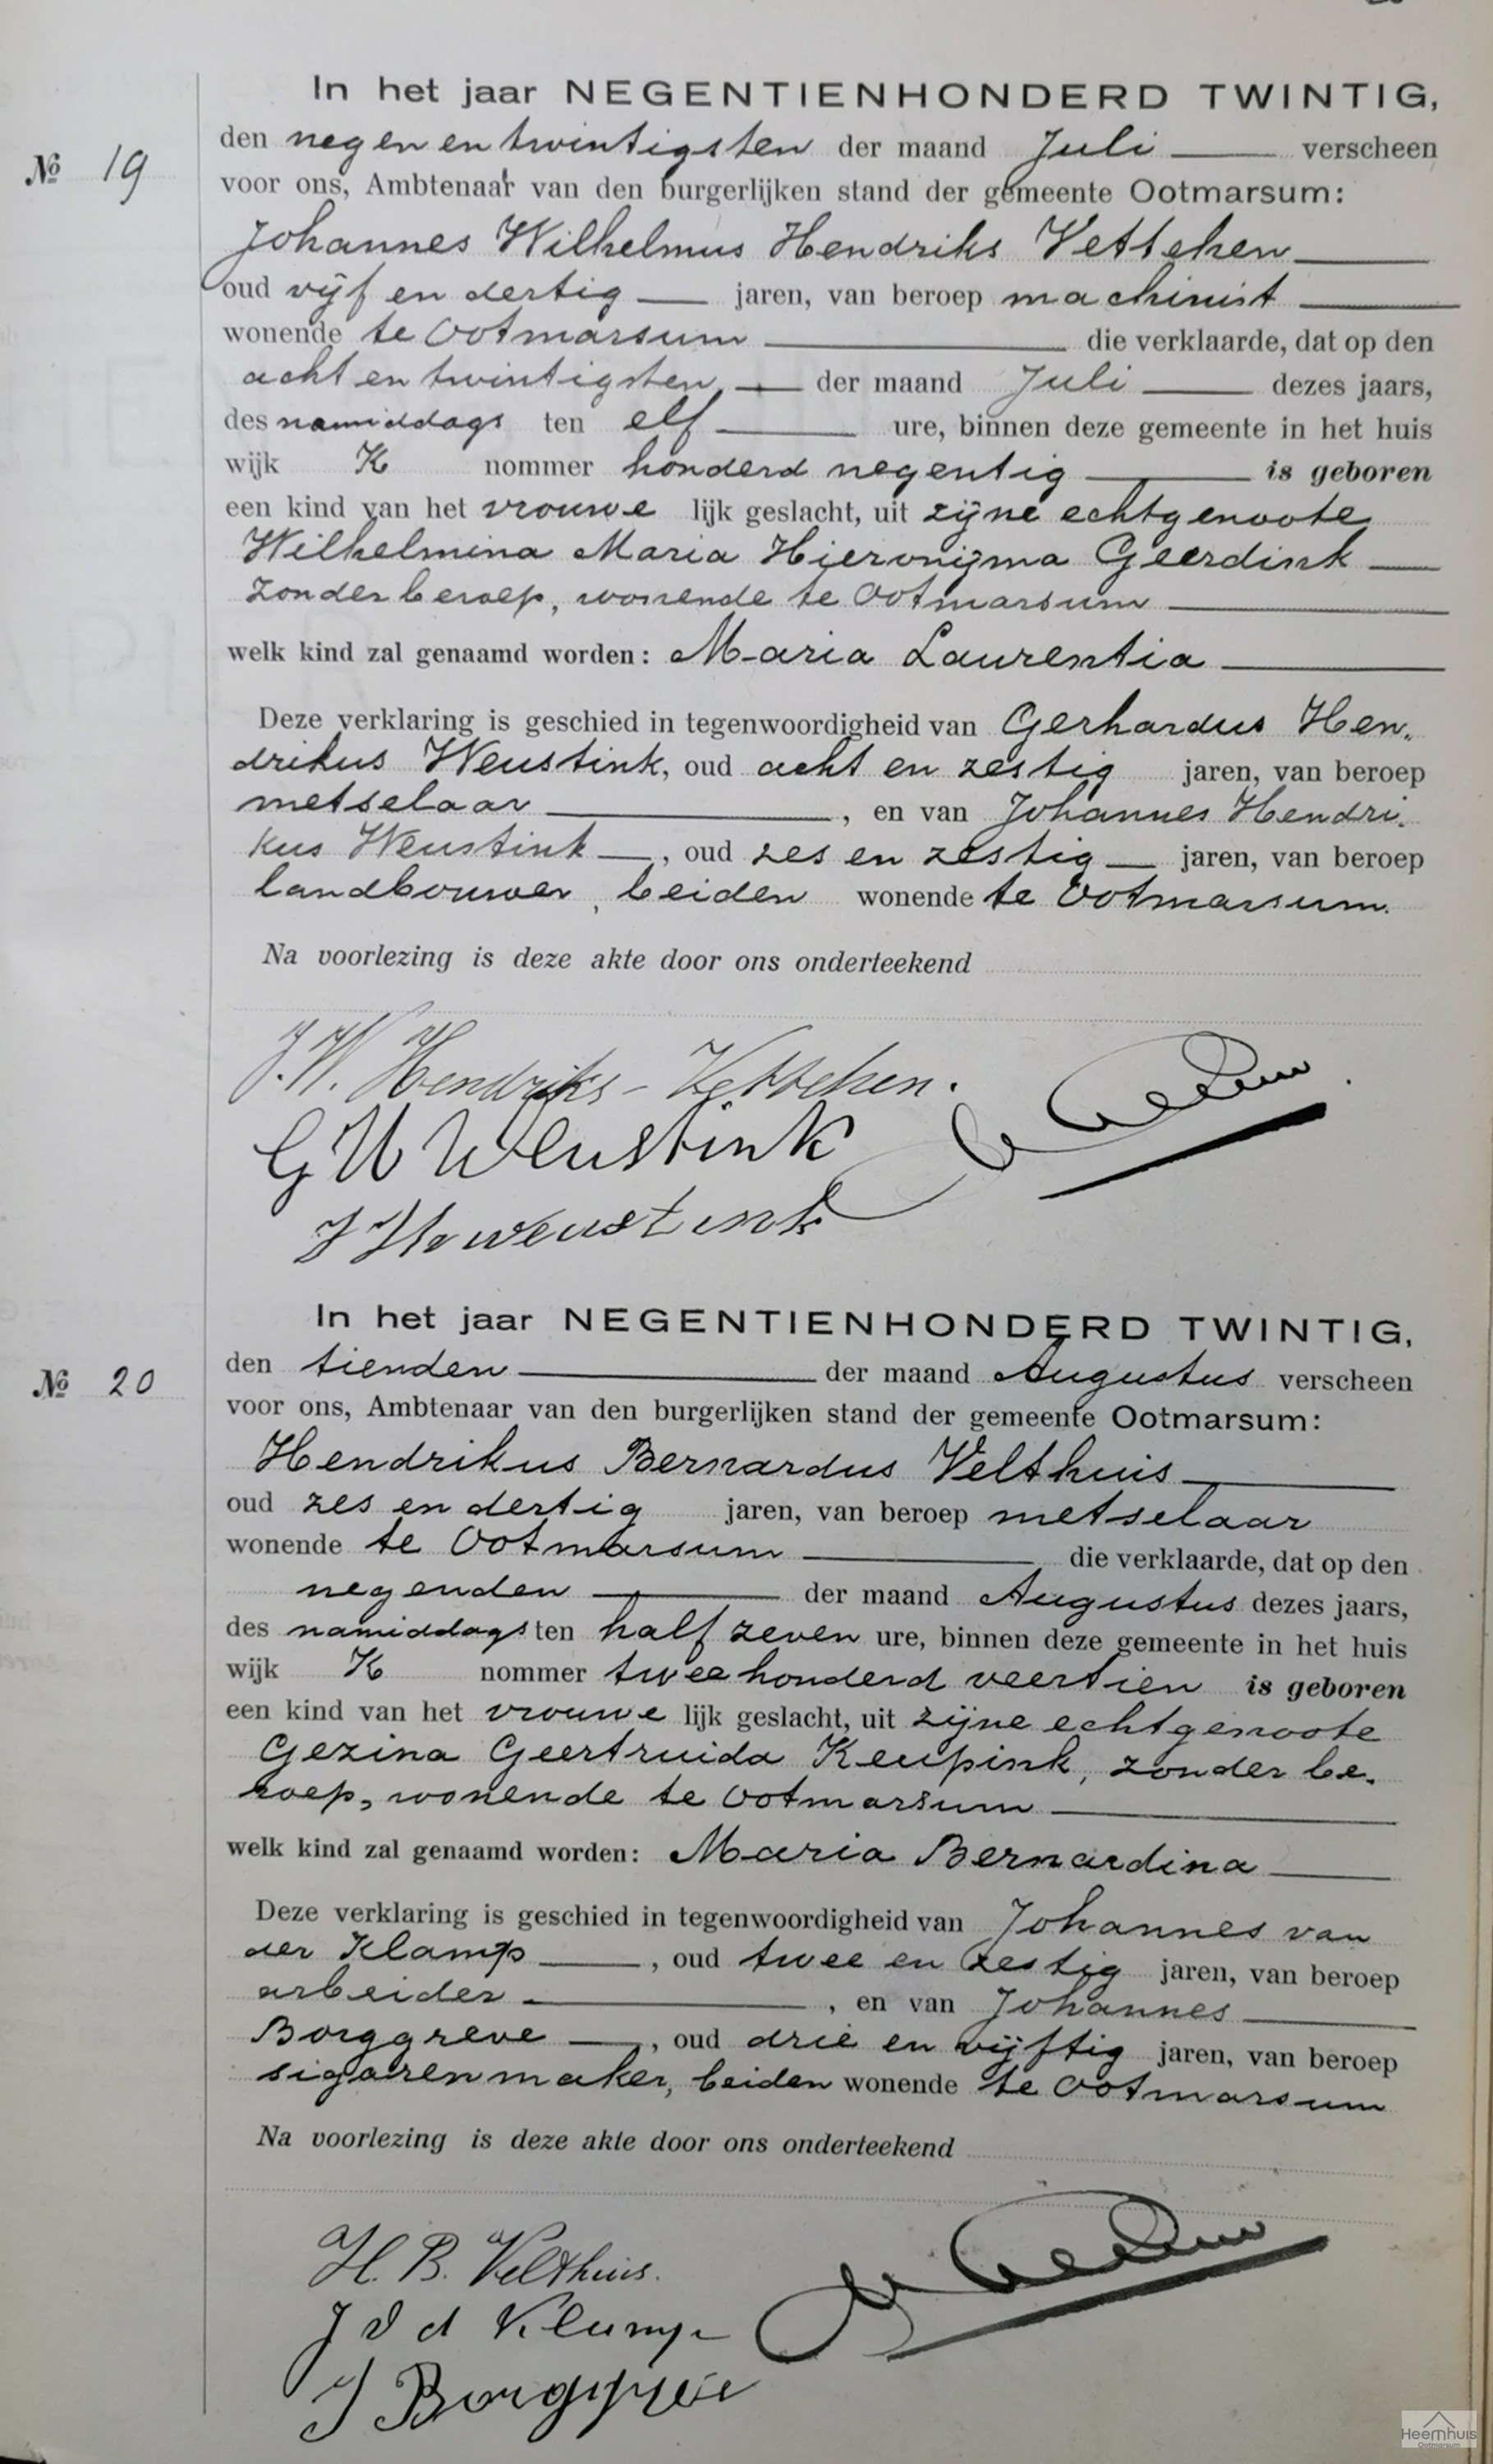 In het jaar NEGENTIENHONDERD TWINTIG,
№ 19
den negen en twintigsten der maand Juli verscheen
voor ons, Ambtenaar van den burgerlijken stand der gemeente Ootmarsum:
Johannes Wilhelmus Hendriks Vettehen
oud vijf en dertig jaren, van beroep machinist
wonende te Ootmarsum die verklaarde, dat op den
acht en twintigsten der maand Juli dezes jaars,
des namiddags ten elf ure, binnen deze gemeente in het huis
wijk K nommer honderd negentig is geboren
een kind van het vrouwe lijk geslacht, uit zijne echtgenoote
Wilhelmina Maria Hieronijma Geerdink
zonder beroep, wonende te Ootmarsum
welk kind zal genaamd worden: Maria Laurentia
Deze verklaring is geschied in tegenwoordigheid van Gerhardus Hen-
drikus Weustink, oud acht en zestig jaren, van beroep
metselaar, en van Johannes Hendri-
kus Weustink, oud zes en zestig jaren, van beroep
landbouwer, beiden wonende te Ootmarsum.
Na voorlezing is deze akte door ons onderteekend
J. W. Hendriks-Vettehen.
G H Weustink
J H Weustink
In het jaar NEGENTIENHONDERD TWINTIG,
№ 20
den tienden der maand Augustus verscheen
voor ons, Ambtenaar van den burgerlijken stand der gemeente Ootmarsum:
Hendrikus Bernardus Velthuis
oud zes en dertig jaren, van beroep metselaar
wonende te Ootmarsum die verklaarde, dat op den
negenden der maand Augustus dezes jaars,
des namiddags ten half zeven ure, binnen deze gemeente in het huis
wijk K nommer twee honderd veertien is geboren
een kind van het vrouwe lijk geslacht, uit zijne echtgenoote
Gezina Geertruida Keupink, zonder be-
roep, wonende te Ootmarsum
welk kind zal genaamd worden: Maria Bernardina
Deze verklaring is geschied in tegenwoordigheid van Johannes van
der Klamp, oud twee en zestig jaren, van beroep
arbeider, en van Johannes
Borggreve, oud drie en vijftig jaren, van beroep
sigarenmaker, beiden wonende te Ootmarsum
Na voorlezing is deze akte door ons onderteekend
H. B. Velthuis.
J v d Klump
J Borggreve
Heemhuis
Ootmarsum